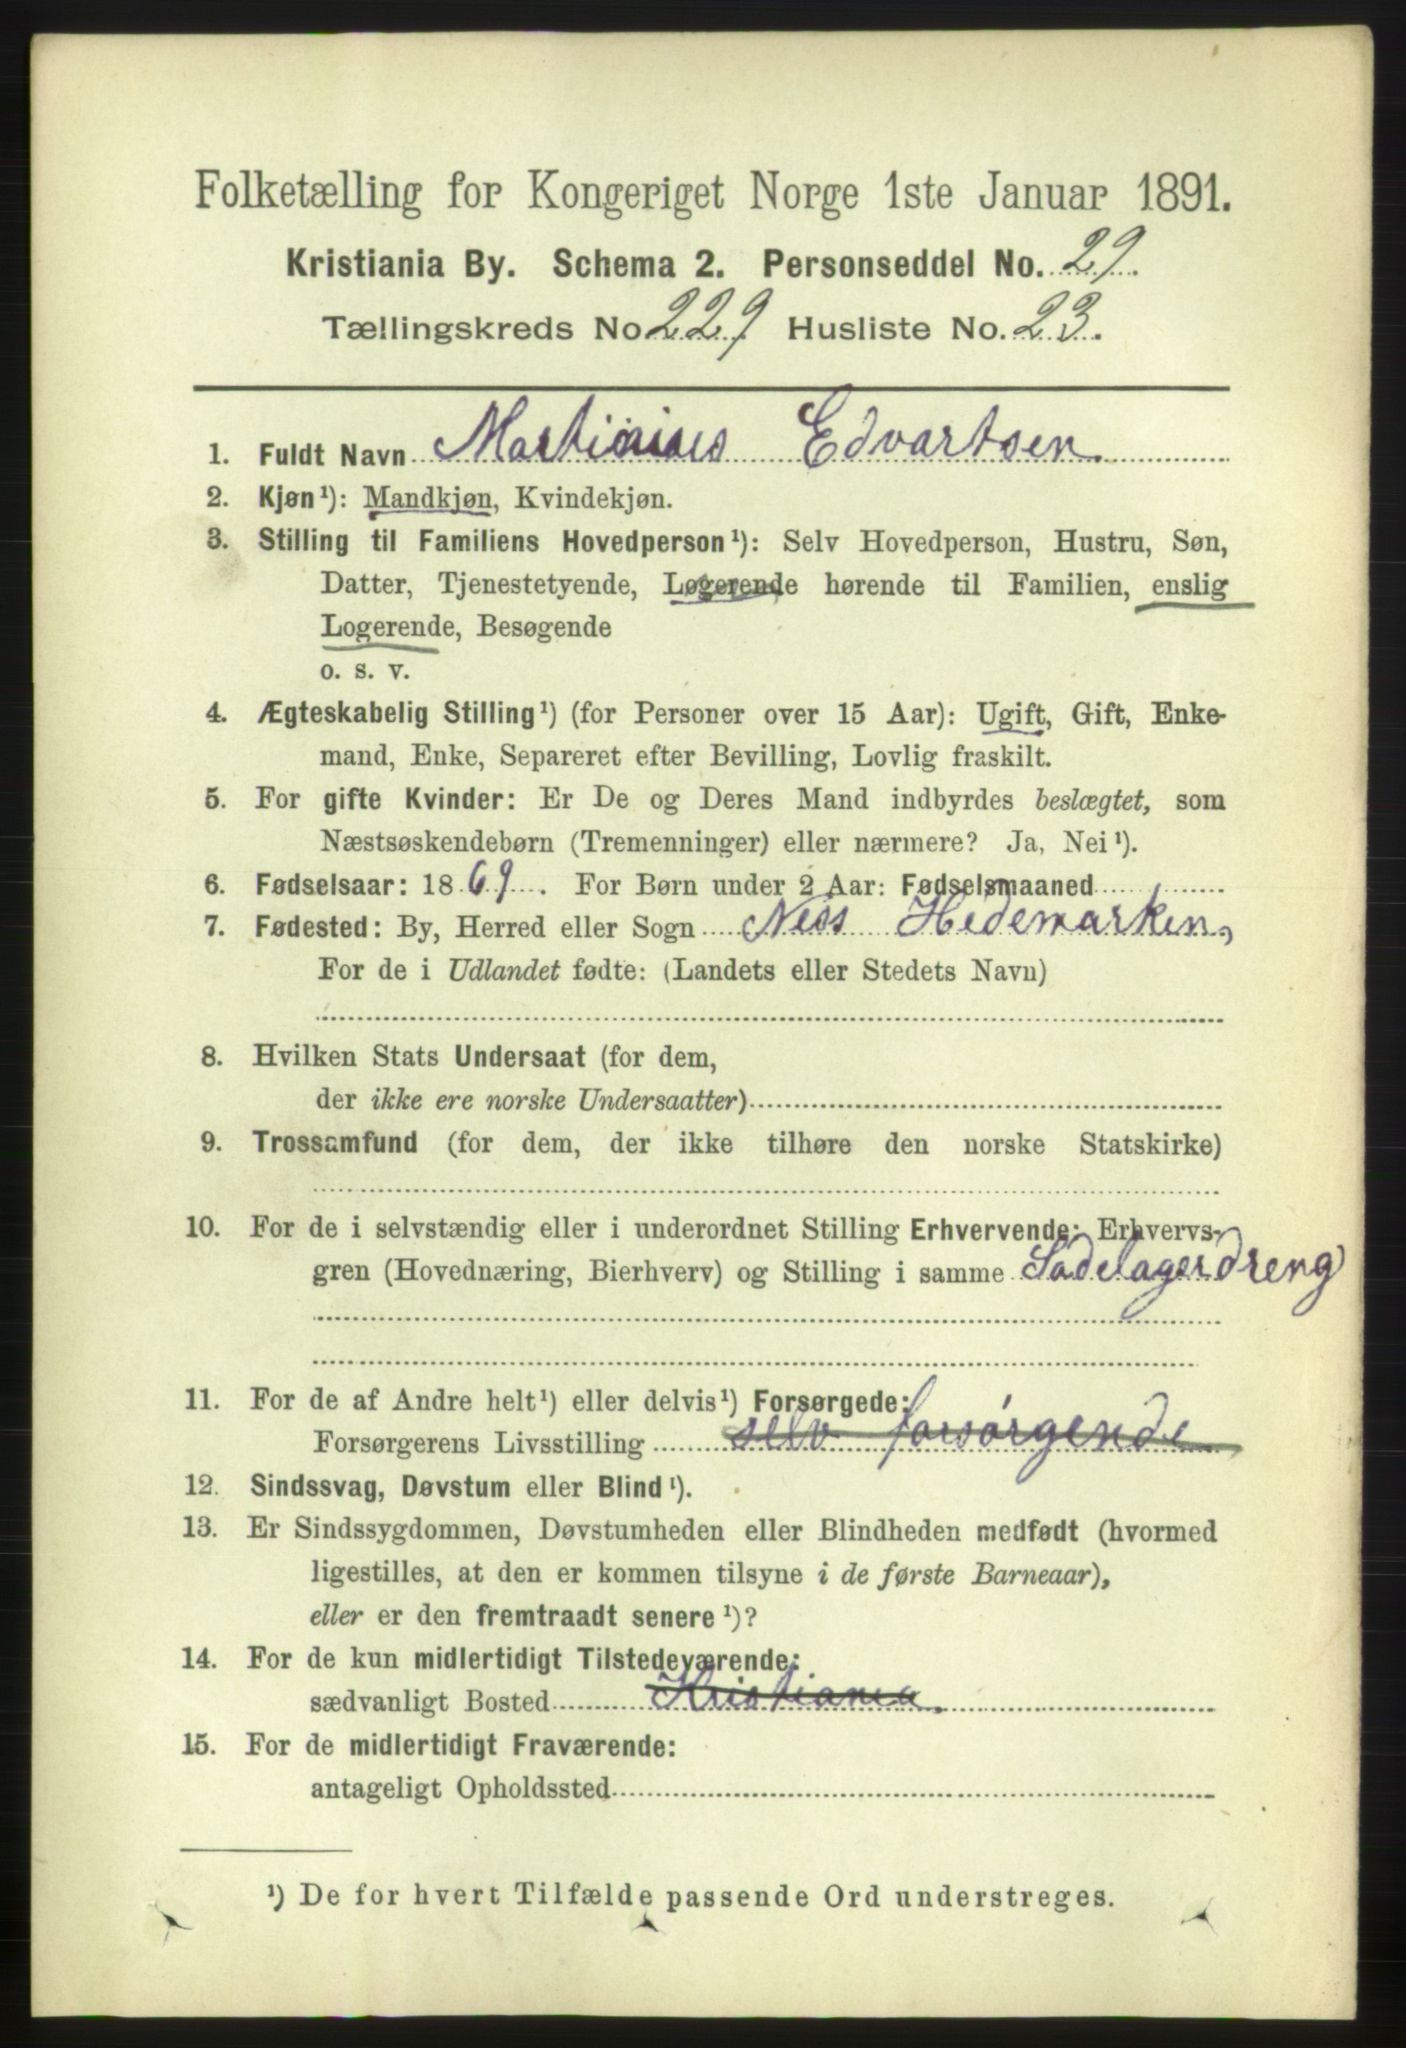 Folketælling for Kongeriget Norge 1ste Januar 1891.
Kristiania By. Schema 2. Personseddel No. 29.
Tællingskreds No. 229 Husliste No. 23.
1. Fuldt Navn Edvartsen.
2. Kjøn ¹): Mandkjøn, Kvindekjøn.
3. Stilling til Familiens Hovedperson ¹): Selv Hovedperson, Hustru, Søn,
Datter, Tjenestetyende, Løgerende hørende til Familien, enslig
Logerende, Besøgende
o. s. v.
4. Ægteskabelig Stilling ¹) (for Personer over 15 Aar): Ugift, Gift, Enke-
mand, Enke, Separeret efter Bevilling, Lovlig fraskilt.
5. For gifte Kvinder: Er De og Deres Mand indbyrdes beslægtet, som
Næstsøskendebørn (Tremenninger) eller nærmere? Ja, Nei ¹).
6. Fødselsaar: 1869. For Børn under 2 Aar: Fødselsmaaned
7. Fødested: By, Herred eller Sogn Ness Hedemarken,
For de i Udlandet fødte: (Landets eller Stedets Navn)
8. Hvilken Stats Undersaat (for dem,
der ikke ere norske Undersaatter)
9. Trossamfund (for dem, der ikke tilhøre den norske Statskirke)
10. For de i selvstændig eller i underordnet Stilling Erhvervende: Erhvervs-
gren (Hovednæring, Bierhverv) og Stilling i samme Sadelagerdreng
11. For de af Andre helt ¹) eller delvis ¹) Forsørgede:
Forsørgerens Livsstilling selv forsørgende
12. Sindssvag, Døvstum eller Blind ¹).
13. Er Sindssygdommen, Døvstumheden eller Blindheden medfødt (hvormed
ligestilles, at den er kommen tilsyne i de første Barneaar),
eller er den fremtraadt senere ¹)?
14. For de kun midlertidigt Tilstedeværende:
sædvanligt Bosted Kristiania.
15. For de midlertidigt Fraværende:
antageligt Opholdssted
¹) De for hvert Tilfælde passende Ord understreges.